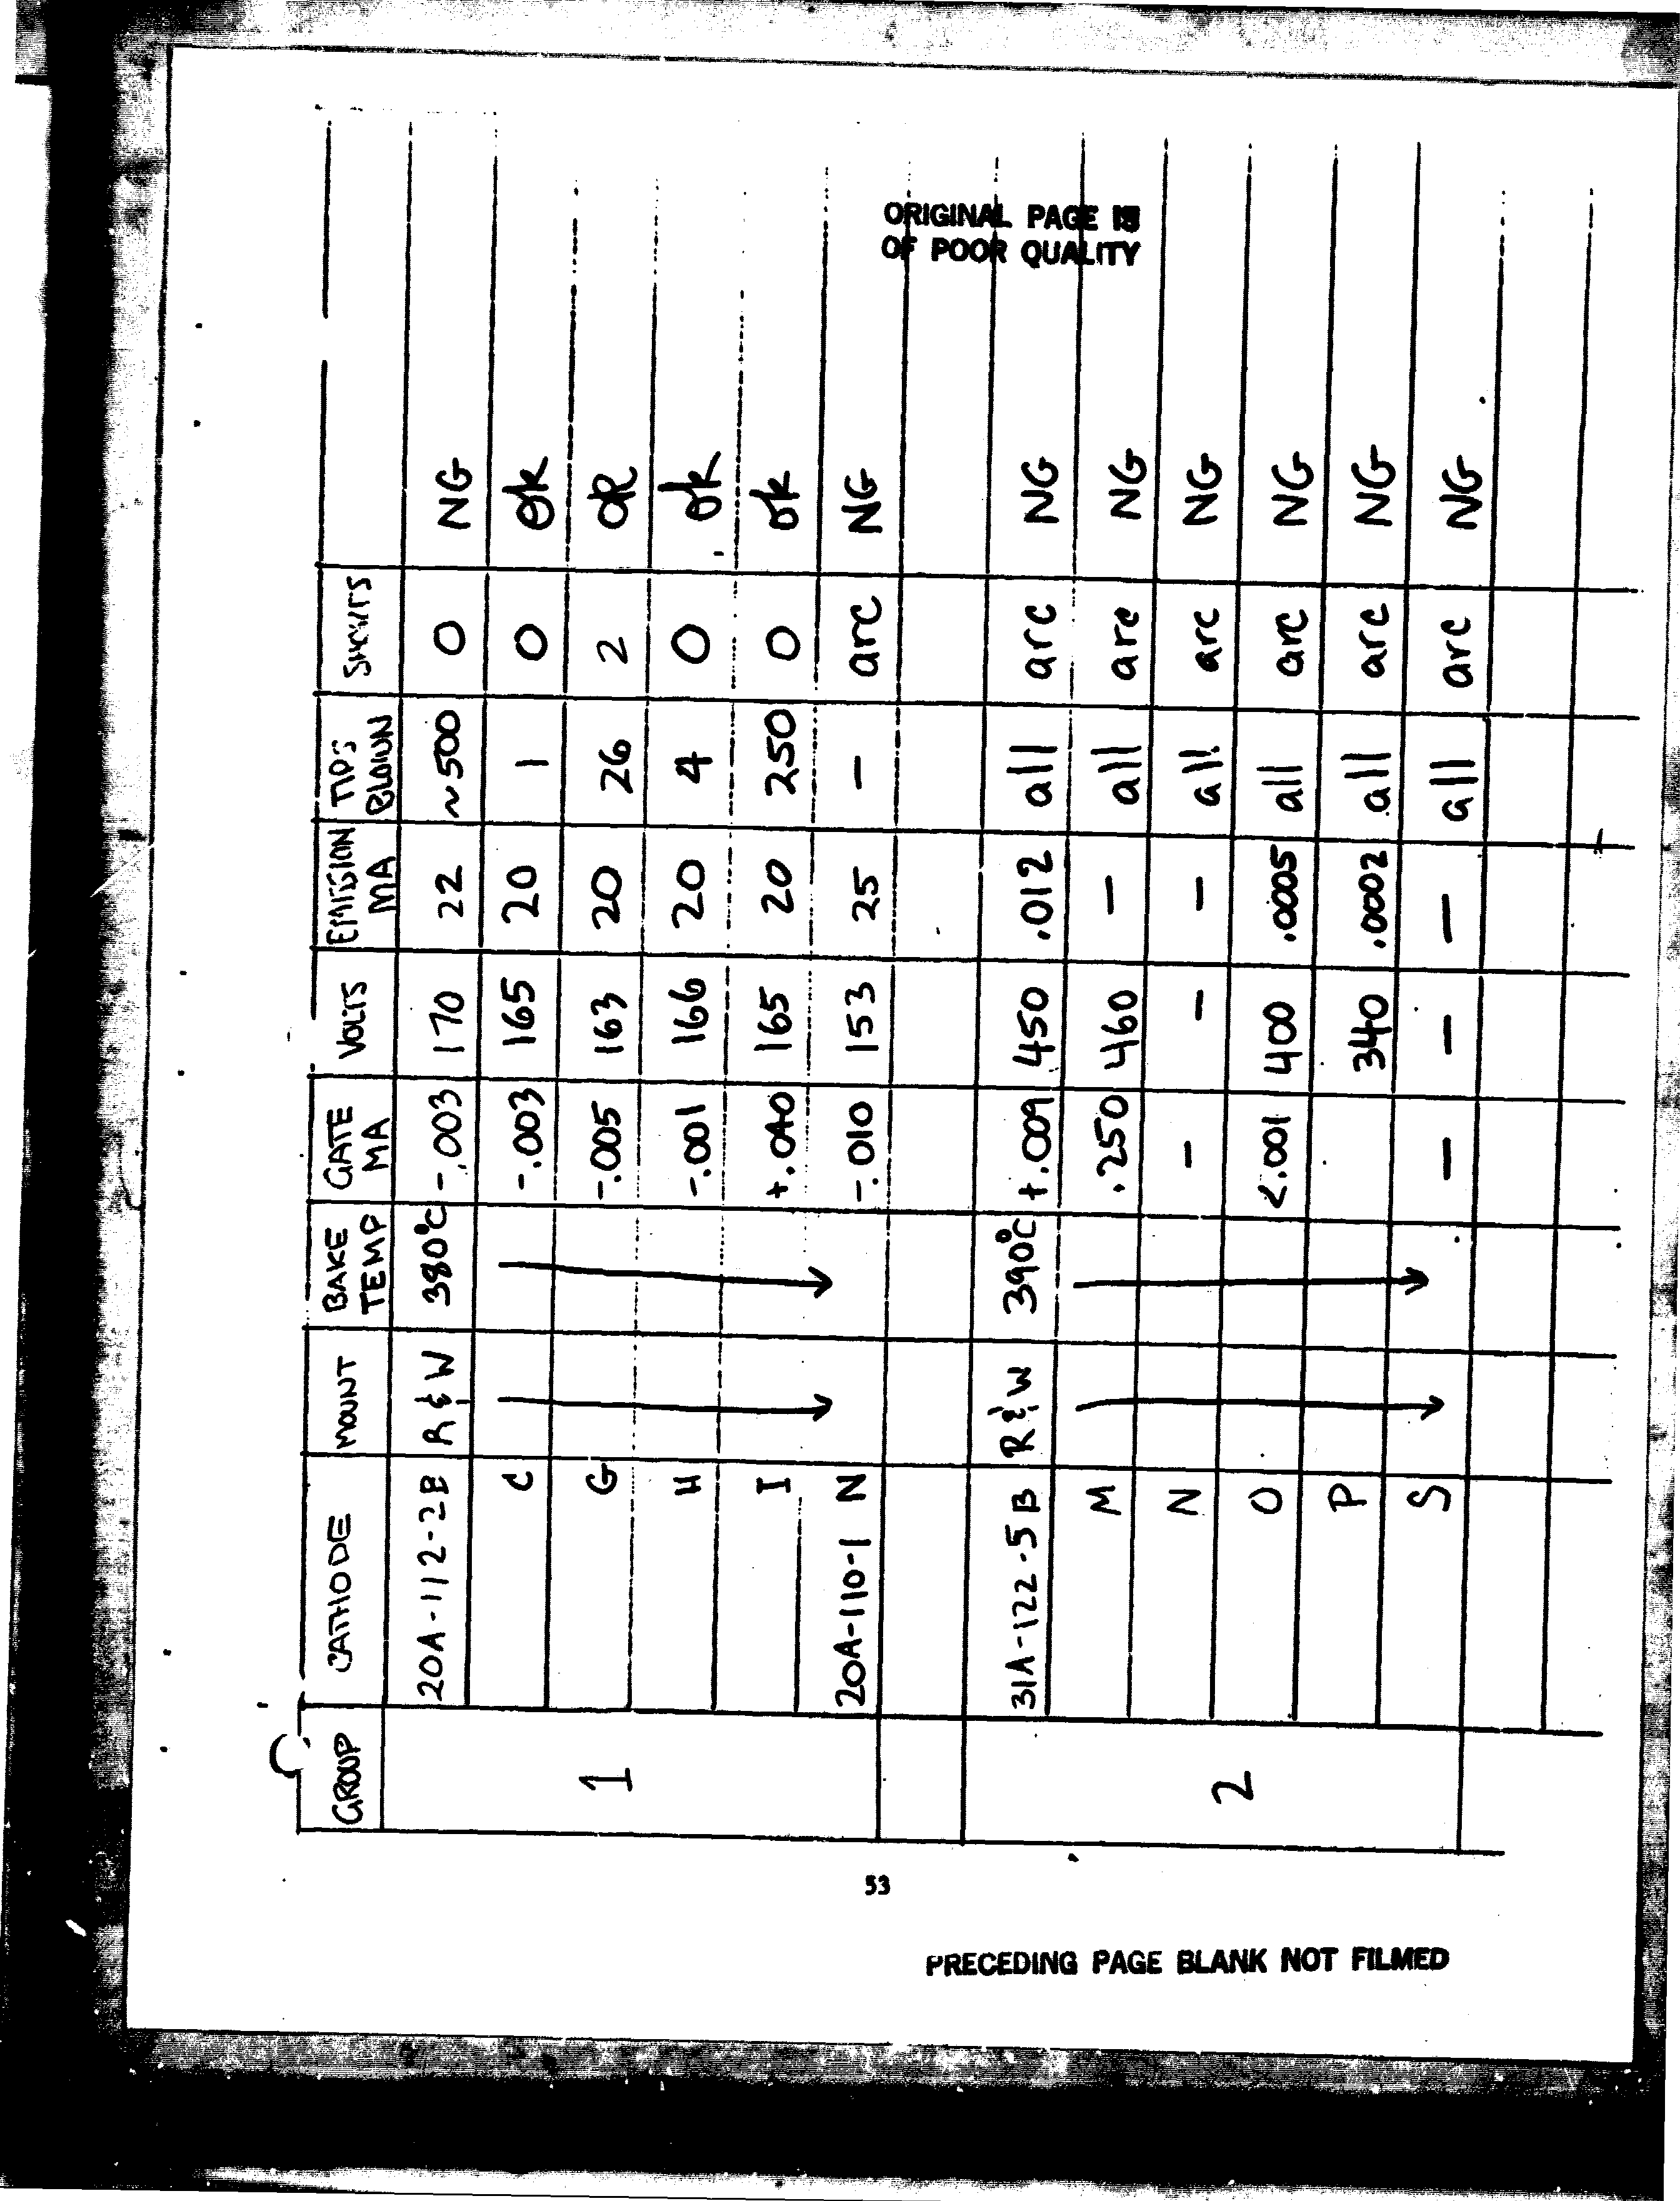 ORIGINAL PAGE IS
OF POOR QUALITY
GROUP CATHODE MOUNT BAKE TEMP GATE MA VOLTS EMISSION MA TIPS BLOWN SHORTS
1 20A-112-2B R & W 380°C -.003 170 22 ~500 0 NG
C -.003 165 20 1 0 ok
G -.005 163 20 26 2 ok
H -.001 166 20 4 0 ok
I +.040 165 20 250 0 ok
20A-110-1 N -.010 153 25 – arc NG
2 31A-122-5 B R & W 390°C +.009 450 .012 all arc NG
M .250 460 – all arc NG
N – – – all arc NG
O <.001 400 .0005 all arc NG
P 340 .0002 all arc NG
S – – – all arc NG
53
PRECEDING PAGE BLANK NOT FILMED